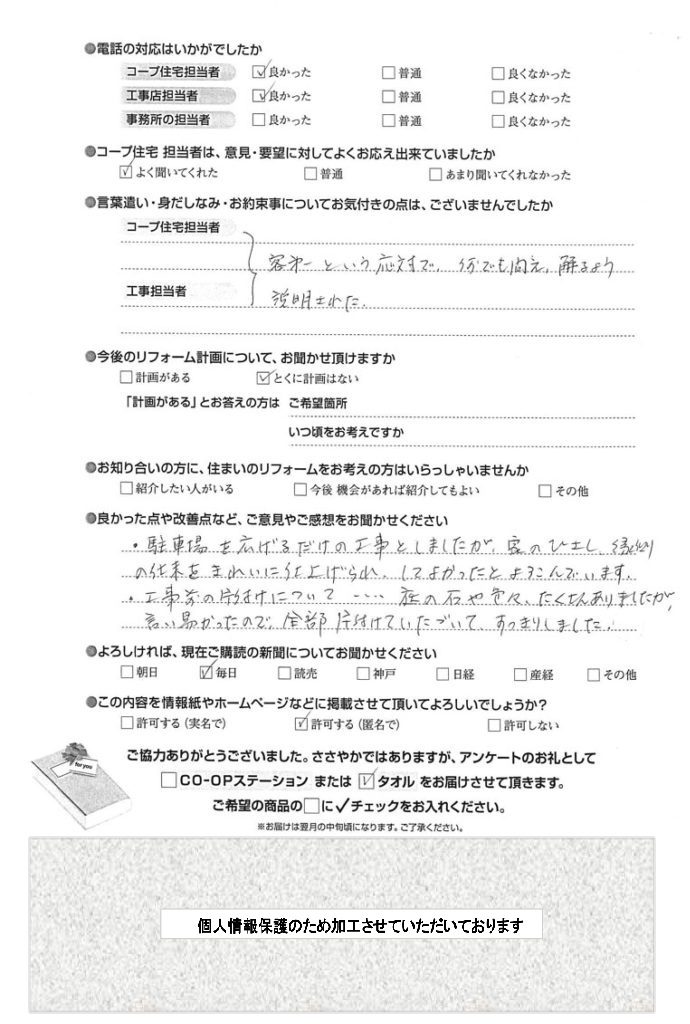 ●電話の対応はいかがでしたか
コープ住宅担当者 ☑良かった □普通 □良くなかった
工事店担当者 ☑良かった □普通 □良くなかった
事務所の担当者 □良かった □普通 □良くなかった
●コープ住宅 担当者は、意見・要望に対してよくお応え出来ていましたか
☑よく聞いてくれた □普通 □あまり聞いてくれなかった
●言葉遣い・身だしなみ・お約束事についてお気付きの点は、ございませんでしたか
コープ住宅担当者
客第一という応対で、何でも問え、解るよう
工事担当者
説明された.
●今後のリフォーム計画について、お聞かせ頂けますか
□計画がある ☑とくに計画はない
「計画がある」とお答えの方は ご希望箇所
いつ頃をお考えですか
●お知り合いの方に、住まいのリフォームをお考えの方はいらっしゃいませんか
□紹介したい人がいる □今後 機会があれば紹介してもよい □その他
●良かった点や改善点など、ご意見やご感想をお聞かせください
・駐車場を広げるだけの工事としましたが、家のひさし、縁
の仕末をきれいに仕上げられ、してよかったとよろこんでいます.
・工事前の片付けについて ‥‥ 庭の石や色々、たくさんありましたが、
言い易かったので、全部片付けていただいて、すっきりしました.
●よろしければ、現在ご購読の新聞についてお聞かせください
□朝日 ☑毎日 □読売 □神戸 □日経 □産経 □その他
●この内容を情報紙やホームページなどに掲載させて頂いてよろしいでしょうか?
□許可する(実名で) ☑許可する(匿名で) □許可しない
for you
ご協力ありがとうございました。ささやかではありますが、アンケートのお礼として
□CO-OPステーション または ☑タオル をお届けさせて頂きます。
ご希望の商品の□に✓チェックをお入れください。
※お届けは翌月の中旬頃になります。ご了承ください。
個人情報保護のため加工させていただいております